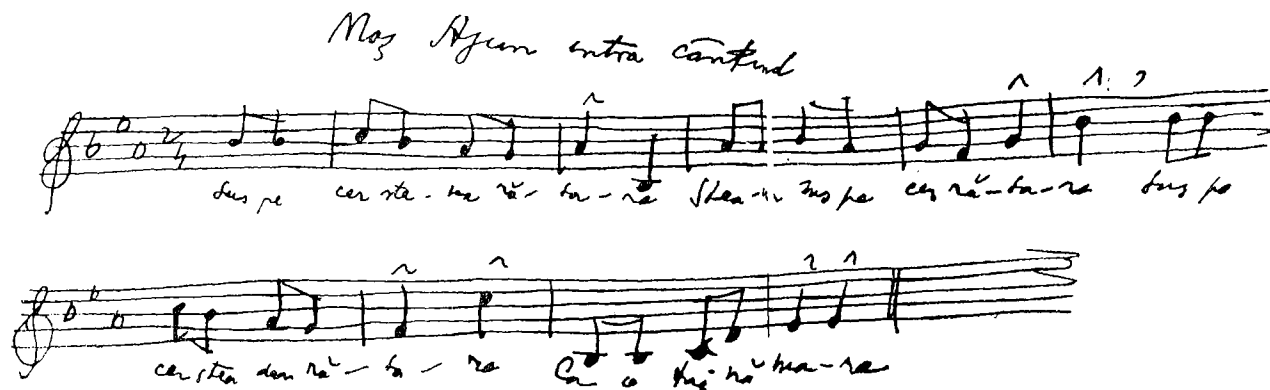 Moș Ajun intra cântând
2/4
Sus pe cer stea-ua ră-sa-re Stea-ua Sus pe cer ră-sa-re Sus pe
cer stea din ră-sa-re Ca o